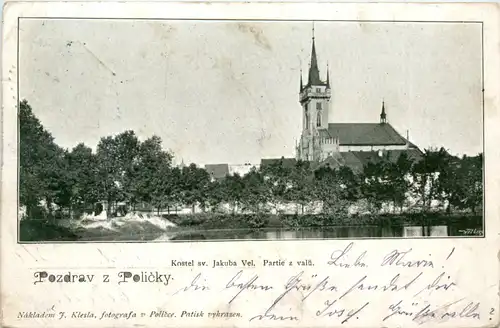 Kostel sv. Jakuba Vel. Partie z valů.
Pozdrav z Poličky.
Liebe Marie!
die besten Grüße sendet dir
dein Josef. Grüße
alle!
Nákladem J. Klesla, fotografa v Poličce. Patisk vyhrazen.